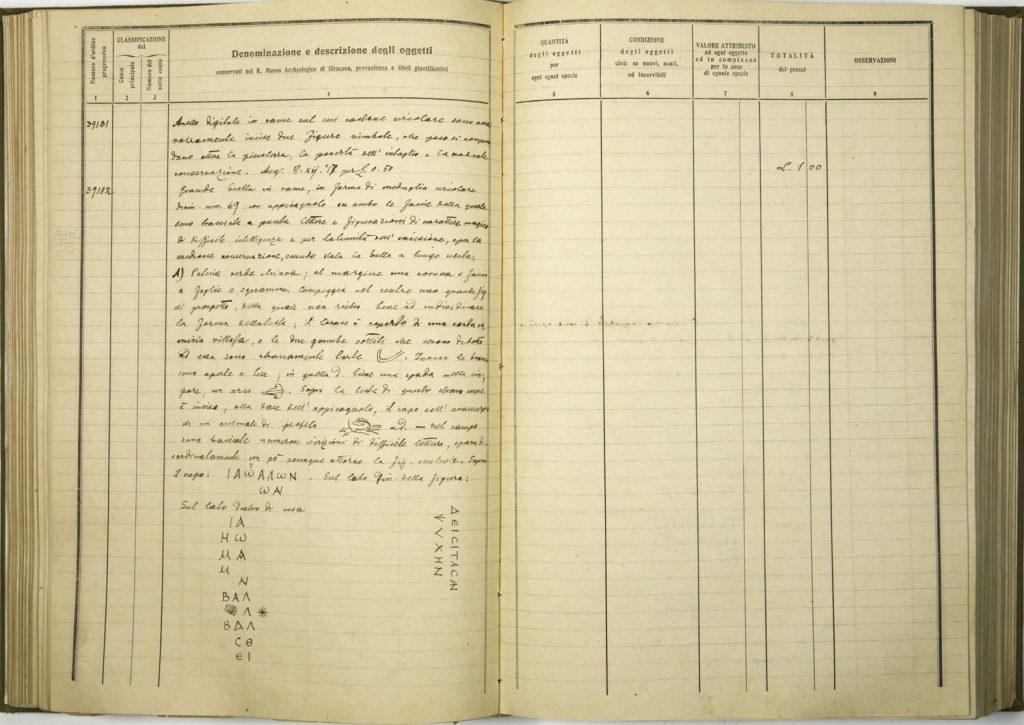 Numero d'ordine progressivo
CLASSIFICAZIONE del
Conto principale
Numero del sotto conto
Denominazione e descrizione degli oggetti
conservati nel R. Museo Archeologico di Siracusa, provenienza e titoli giustificativi
QUANTITÀ degli oggetti per ogni egual specie
CONDIZIONE degli oggetti cioè: se nuovi, usati, od inservibili
VALORE ATTRIBUITO ad ogni oggetto ed in complesso per le cose di eguale specie
TOTALITÀ dei prezzi
OSSERVAZIONI
1 2 3 4 5 6 7 8 9
39181
Anello digitale in rame sul cui castone circolare sono
incise due figure nimbate, che poco si
la piccolezza, la povertà dell' intaglio e la
conservazione. Acq. per £. 0.50
L. 1 00
39182
Grande bulla in rame, in forma di medaglia circolare
diam. mm. 69 con appicagnolo su ambo le faccie della quale
sono tracciate a punta lettere e figurazioni di carattere magico
di difficile intelligenza e per la tenuità dell' incisione, e per la
mediocre conservazione, essendo stata la bulla a lungo usata.
A) Patina verde chiara; al margine una corona
a foglie o squamme. Campeggia nel centro una grande fig.
di prospetto, della quale non riesco bene ad individuare
la forma della testa; il torace è coperto di una
villosa, e le due gambe
ad essa sono stranamente torte . Invece le braccia
sono aperte e tese; in quella d. tiene una spada nella sin.
pare, un arco . Sopra la testa di questo strano
è inciso, alla base dell' appicagnolo, il capo coll'
di un animale di profilo ad. — nel campo
sono tracciate numerose iscrizioni di difficile lettura,
un pò ovunque attorno la fig. centrale. Sopra
il capo: ΙΑΩΑΛωΝ . Sul lato sin. della figura:
ωΑΙ
Sul lato destro di essa
ΙΑ
Η ω
Μ Α
Μ
Ν
ΒΑΛ
Λ ✳
ΒΑΛ
C Θ
Ε Ι
ΔΕΙCΙΤΑCΑΙ
ΨΥΧΗΝ